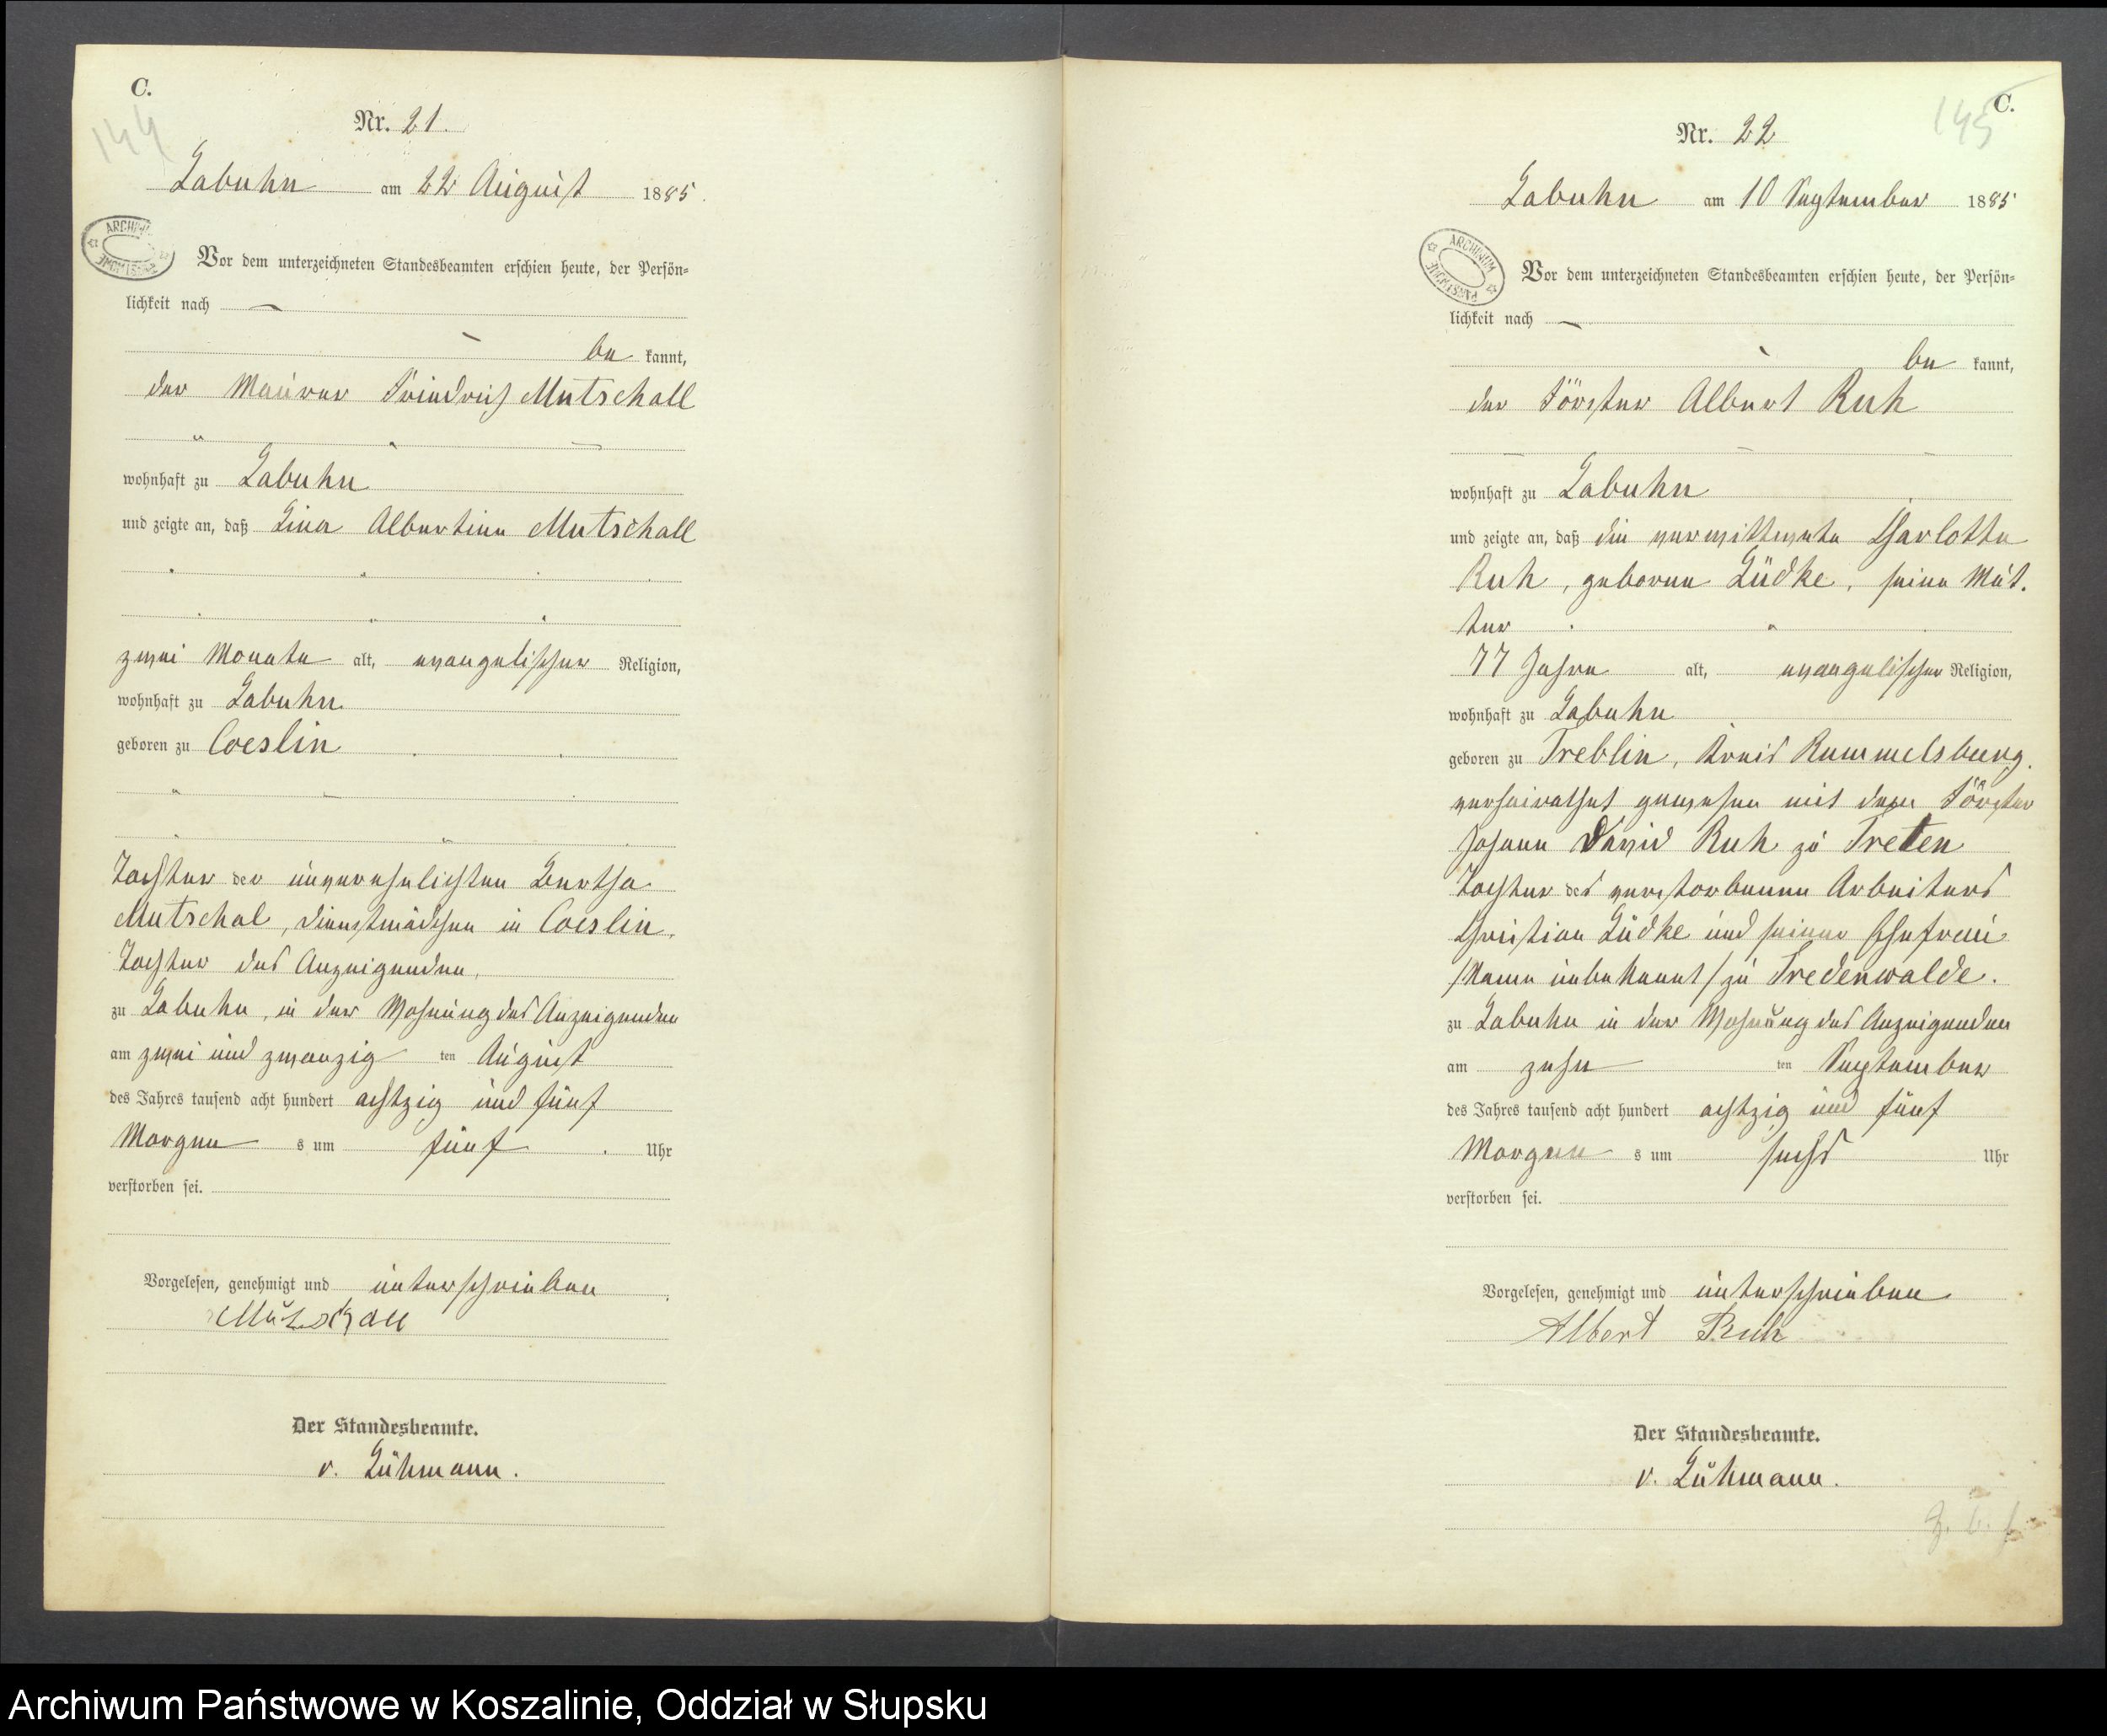 C.
144
Nr. 21.
Labuhn am 22 August 1885.
ARCHIWUM PAŃSTWOWE
Vor dem unterzeichneten Standesbeamten erschien heute, der Persön-
lichkeit nach —
be kannt,
der Maurer Friedrich Mutschall
wohnhaft zu Labuhn
und zeigte an, daß Lina Albertine Mutschall
zwei Monate alt, evangelischer Religion,
wohnhaft zu Labuhn
geboren zu Coeslin
Tochter der unverehelichten Bertha
Mutschal, Dienstmädchen in Coeslin,
Tochter des Anzeigenden,
zu Labuhn, in der Wohnung des Anzeigenden
am zwei und zwanzig ten August
des Jahres tausend acht hundert achtzig und fünf
Morgen s um fünf Uhr
verstorben sei.
Vorgelesen, genehmigt und unterschrieben
Mutschall
Der Standesbeamte.
v. Lühmann.
C.
145
Nr. 22
Labuhn am 10 September 1885
ARCHIWUM PAŃSTWOWE
Vor dem unterzeichneten Standesbeamten erschien heute, der Persön-
lichkeit nach —
be kannt,
der Förster Albert Ruh
wohnhaft zu Labuhn
und zeigte an, daß die verwittwete Charlotte
Ruh, geborne Lüdke, seine Mut-
ter
77 Jahre alt, evangelischer Religion,
wohnhaft zu Labuhn
geboren zu Treblin, Kreis Rummelsburg.
verheirathet gewesen mit dem Förster
Johann David Ruh zu Treten
Tochter des verstorbenen Arbeiters
Christian Lüdke und seiner Ehefrau
/Name unbekannt/ zu Fredenwalde.
zu Labuhn in der Wohnung des Anzeigenden
am zehn ten September
des Jahres tausend acht hundert achtzig und fünf
Morgen s um sechs Uhr
verstorben sei.
Vorgelesen, genehmigt und unterschrieben
Albert Ruh
Der Standesbeamte.
v. Lühmann.
Archiwum Państwowe w Koszalinie, Oddział w Słupsku